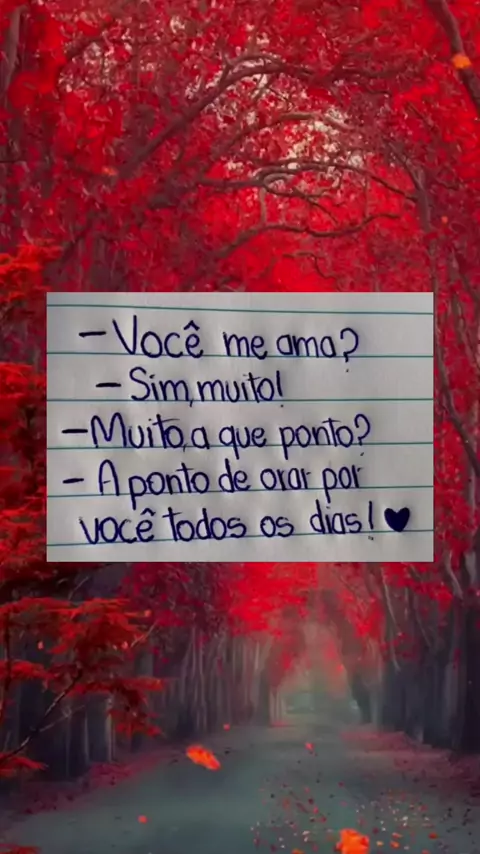 – Você me ama?
– Sim, muito!
– Muito, a que ponto?
– A ponto de orar por
você todos os dias! ♥